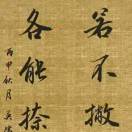 若不撇
各能捺
丙申秋月 吳